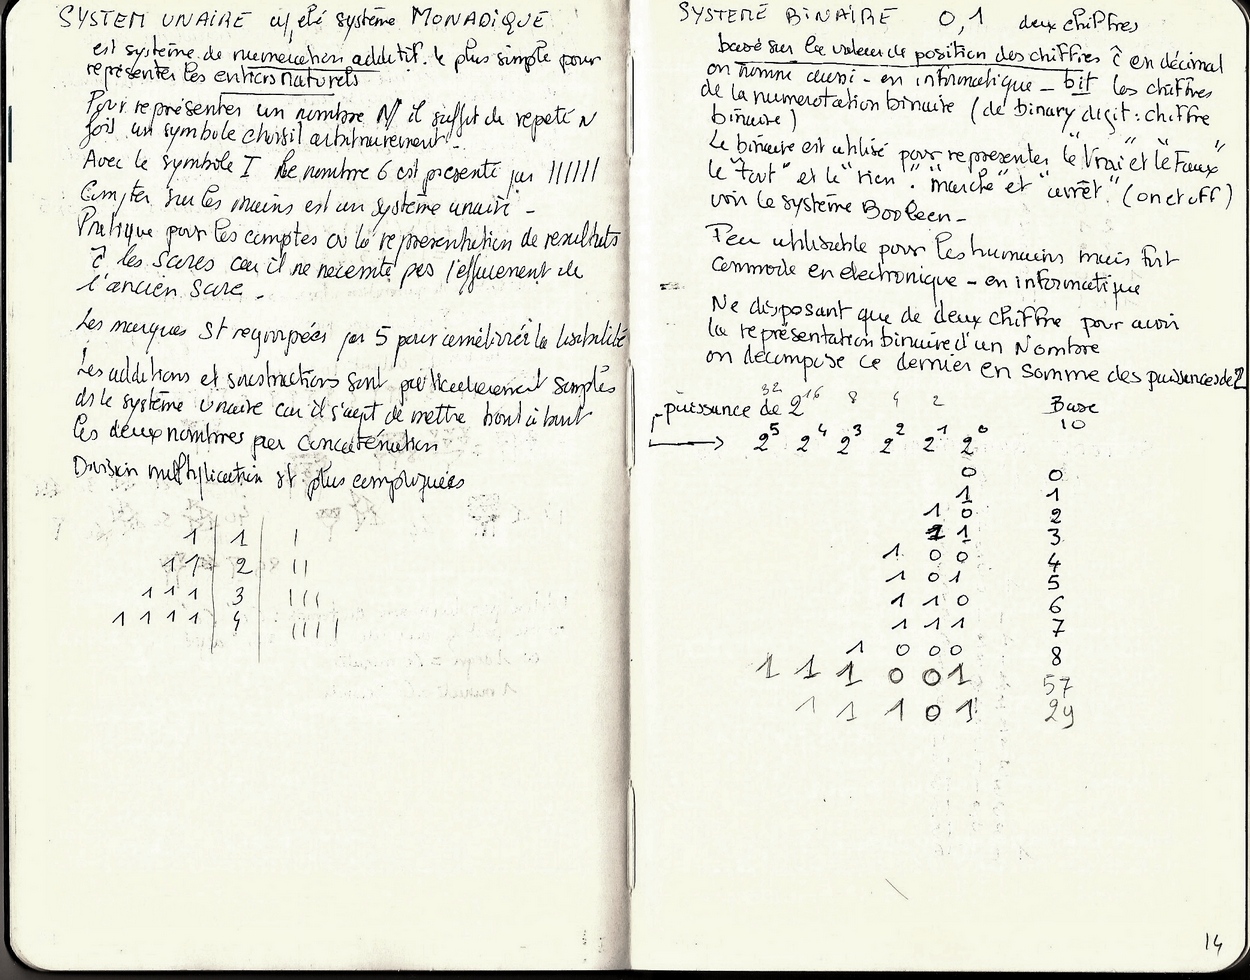 SYSTEM UNAIRE système MONADIQUE
est système de numeration additif. le plus simple pour
représenter les entiers naturels
Pour représenter un nombre N il suffit de repeté N
fois un symbole choisil arbitrairement.
Avec le symbole I le nombre 6 est presenté par IIIIII
Compter sur les mains est un système unaire -
Pratique pour les comptes ou la représentation de resultats
les scores car il ne necessite pas l'effacement de
l'ancien score.
Les marques st regroupées par 5 pour améliorer la lisibilité
Les additions et soustractions sont particulierement simples
ds le système unaire car il s'agit de mettre bout à bout
les deux nombres par concatenation
Division multiplication st plus compliquées
1 | 1 | I
1 1 | 2 | II
1 1 1 | 3 | III
1 1 1 1 | 4 | IIII
SYSTEME BINAIRE 0,1 deux chiffres
basé sur la valeur de position des chiffres c̄ en décimal
on nomme aussi - en informatique - bit les chiffres
de la numerotation binaire (de binary digit : chiffre
binaire)
Le binaire est utilisé pour representer le "Vrai" et le "Faux"
le "tout" et le "rien". "marche" et "arrêt." (on et off)
voir le système Booleen -
Peu utilisable pour les humains mais fort
commode en électronique - en informatique
Ne disposant que de deux chiffre pour avoir
la représentation binaire d'un Nombre
on décompose ce dernier en somme des puissances de 2
32 16 8 4 2
puissance de 2 Base
10
2^5 2^4 2^3 2^2 2^1 2^0
0 0
1 1
1 0 2
1 1 3
1 0 0 4
1 0 1 5
1 1 0 6
1 1 1 7
1 0 0 0 8
1 1 1 0 0 1 57
1 1 1 0 1 29
14